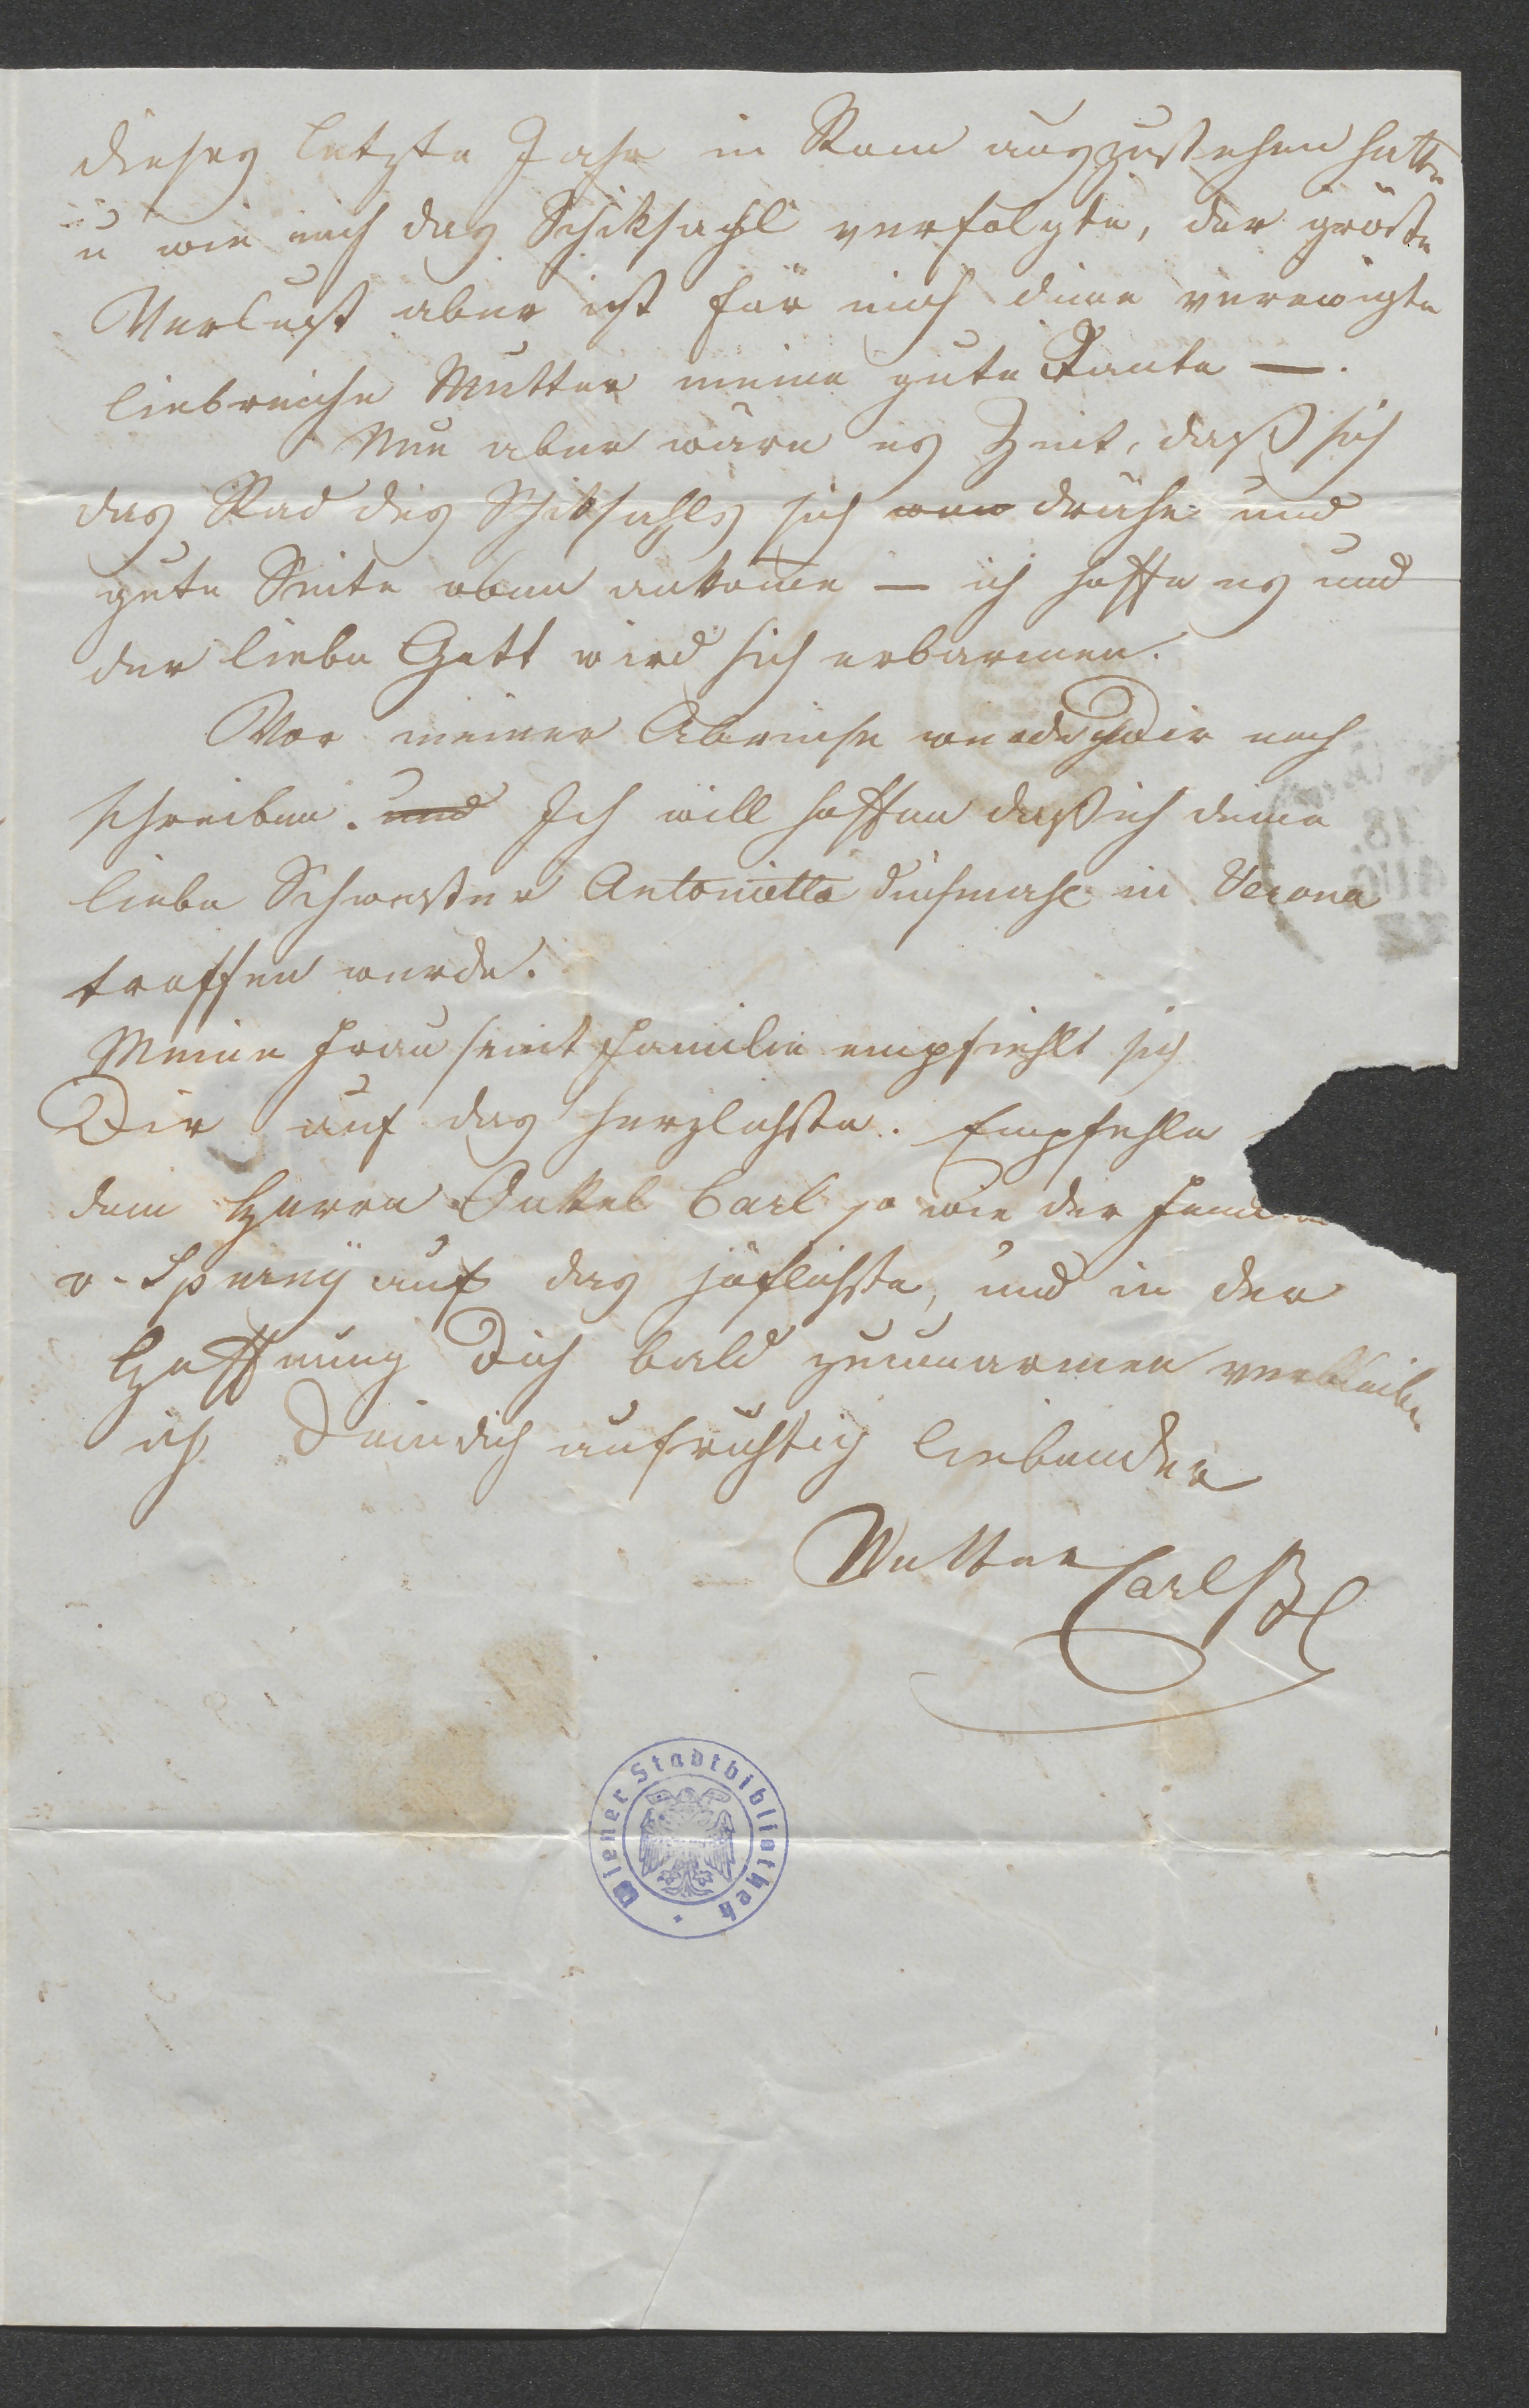 dieses letzte Jahr in Rom auszustehen hatte
u wie mich das Schiksahl verfolgte, der gröste
Verlust aber ist für mich deine verewigte
liebreiche Mutter meine gute Tante —.
Nun aber wäre es Zeit, daß sich
das Rad des Schiksahls sich drähe und
gute Seite oben ankome — ich hoffe es und
der liebe Gott wird sich erbarmen.
Vor meiner Abreise werde Dir noch
schreiben. und Ich will hoffen daß ich deine
liebe Schwester Antonietta dießmahl in Verona
treffen werde.
Meine Frau samt Familie empfiehlt sich
Dir auf das herzlichste. Empfehle
dem Herrn Onkel Carl so wie der
v. auf das höflichste, und in der
Hoffnung Dich bald zu umarmen verbleibe
ich Dein dich aufrichtig liebender
Vetter Carl
Wiener Stadtbibliothek